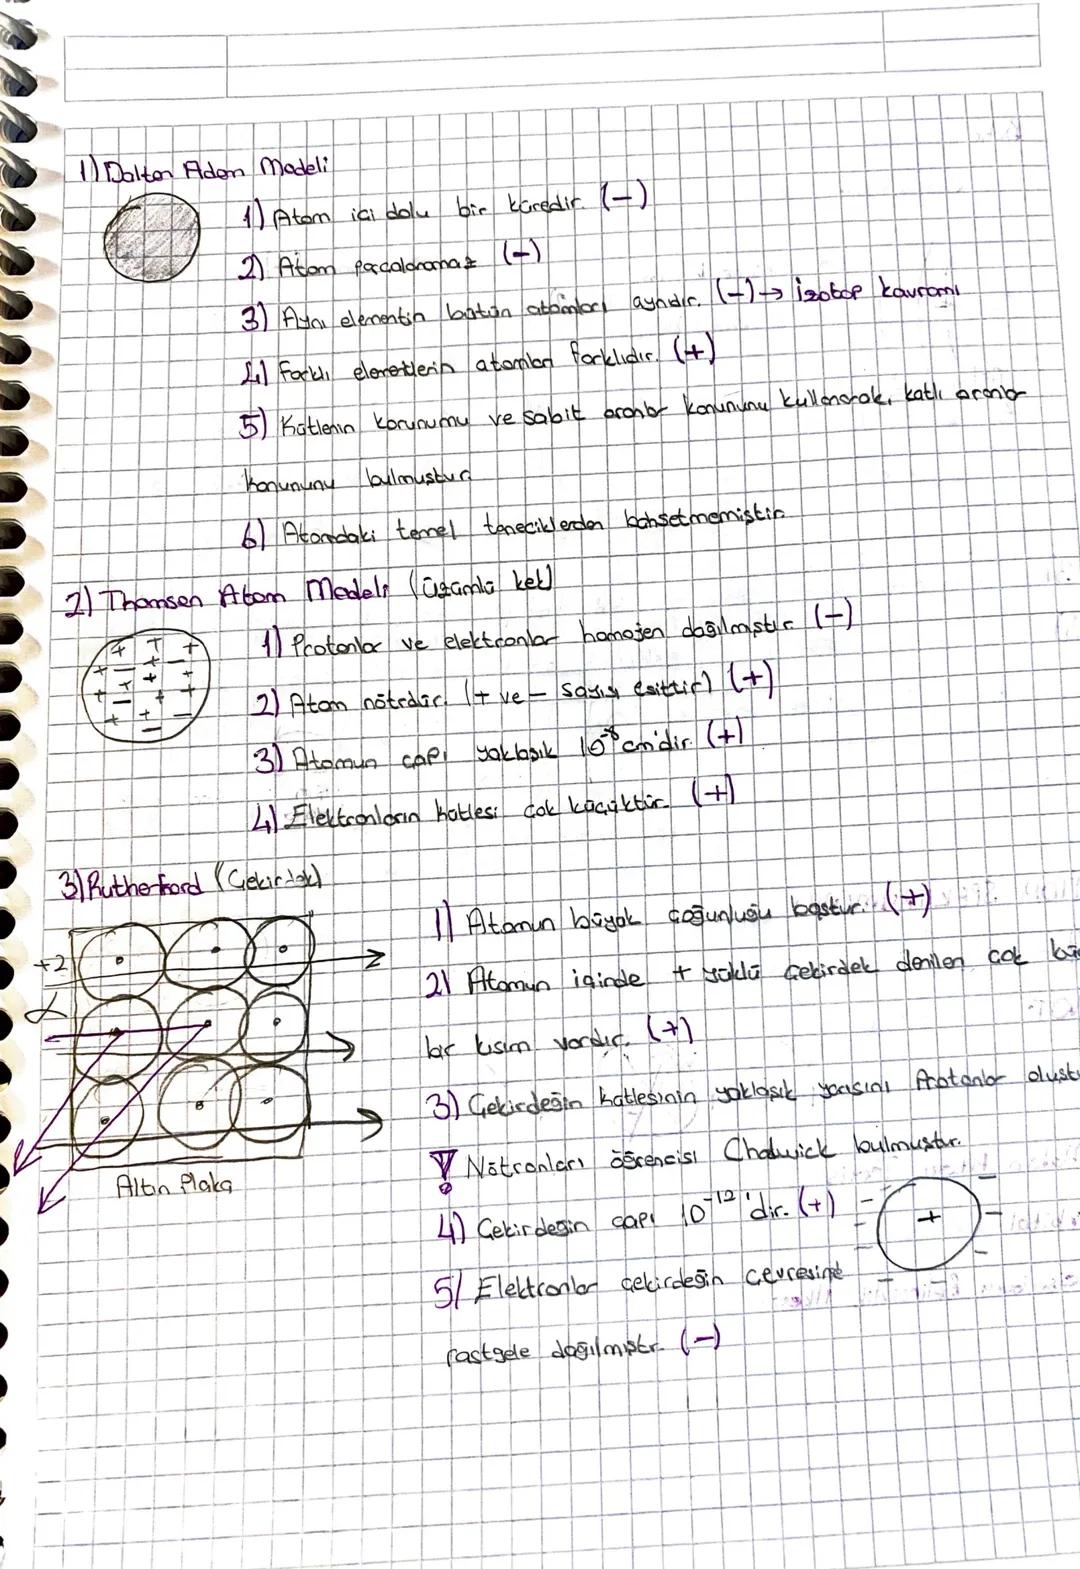 1) Dalton Adom Modeli
1) Atom içi dolu bir küredir. (-)
2) Atom parçalanamaz (-)
3) Aynı elementin bütün atomları aynıdır. (-) → İzotop kavramı
4) Farklı elementlerin atomları farklıdır. (+)
5) Kütlenin korunumu ve sabit oranlar kanununu kullanarak, katlı oranlar
kanununu bulmuştur.
6) Atomdaki temel taneciklerden bahsetmemiştir.
2) Thomson Atom Modeli (üzümlü kek)
1) Protonlar ve elektronlar homojen dağılmıştır (-)
2) Atom nötrdür. (+ ve - sayısı eşittir) (+)
3) Atomun çapı yaklaşık 10⁻⁸ cm'dir. (+)
4) Elektronların kütlesi çok küçüktür. (+)
3) Rutherford (Çekirdek)
1) Atomun büyük çoğunluğu boştur. (+)
+2
α
2) Atomun içinde + yüklü çekirdek denilen çok
bir kısım vardır. (+)
3) Çekirdeğin kütlesinin yaklaşık yarısını Protonlar oluşt
! Nötronları öğrencisi Chadwick bulmuştur.
Altın Plaka
4) Çekirdeğin çapı 10⁻¹²'dir. (+)
5) Elektronlar çekirdeğin çevresine
rastgele dağılmıştır. (-)